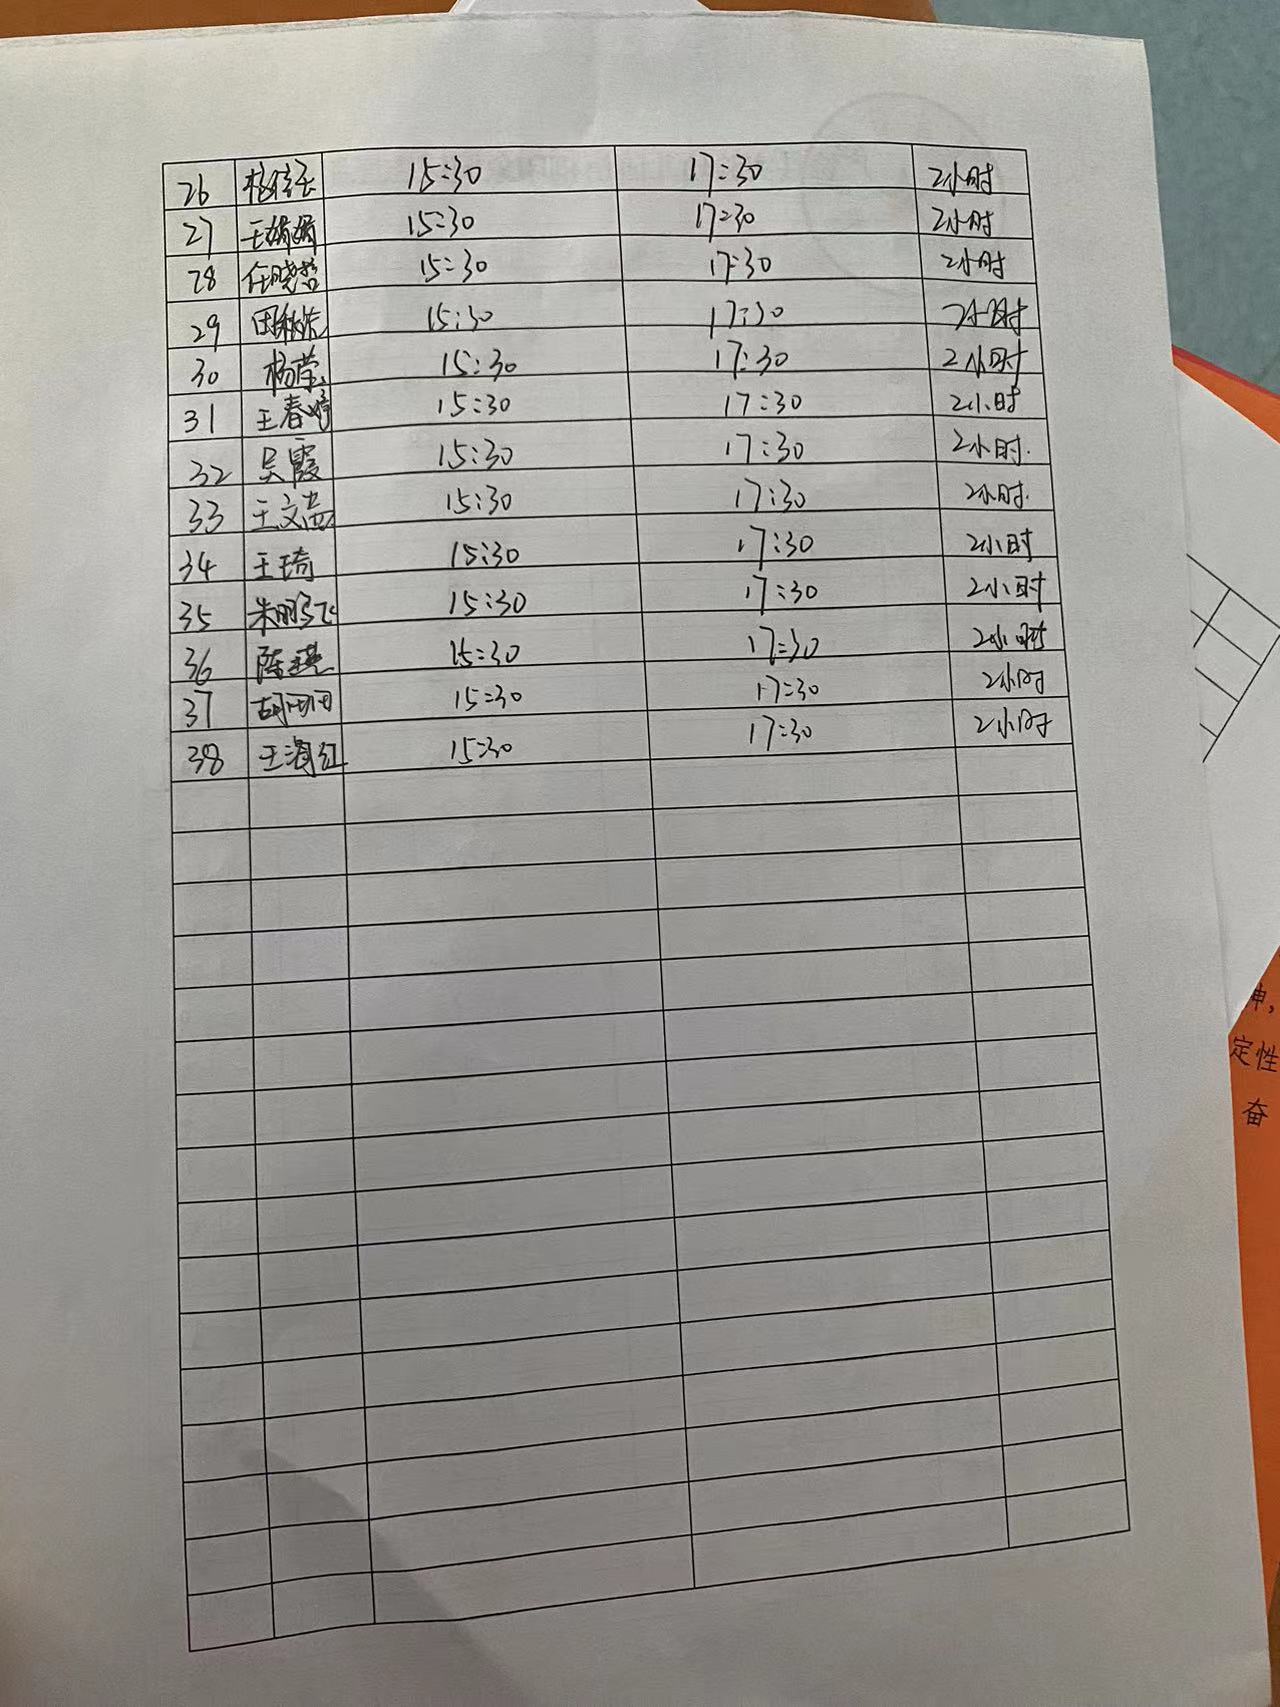 26 15:30 17:30 2小时
27 王娟娟 15:30 17:30 2小时
28 任晓哲 15:30 17:30 2小时
29 田 15:30 17:30 2小时
30 杨莹 15:30 17:30 2小时
31 王春婷 15:30 17:30 2小时
32 吴霞 15:30 17:30 2小时
33 王文 15:30 17:30 2小时
34 王琦 15:30 17:30 2小时
35 朱鹏飞 15:30 17:30 2小时
36 陈瑛 15:30 17:30 2小时
37 胡田田 15:30 17:30 2小时
38 王海红 15:30 17:30 2小时
神，
定性
奋